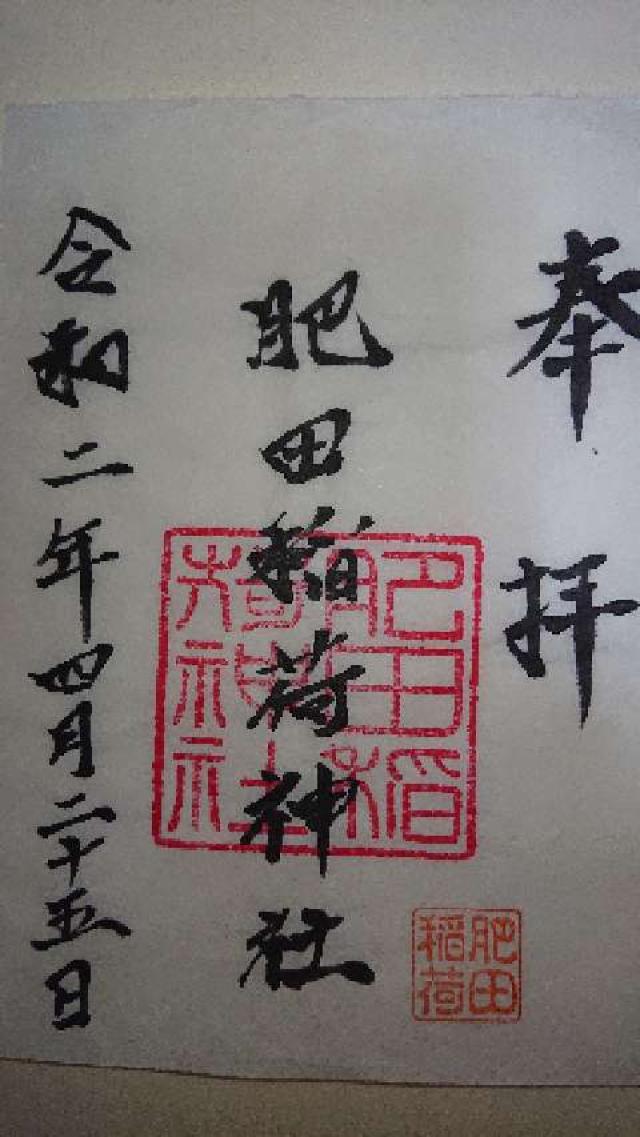 奉拝
肥田稲荷神社
令和二年四月二十五日
肥田稲
荷神社
肥田
稲荷